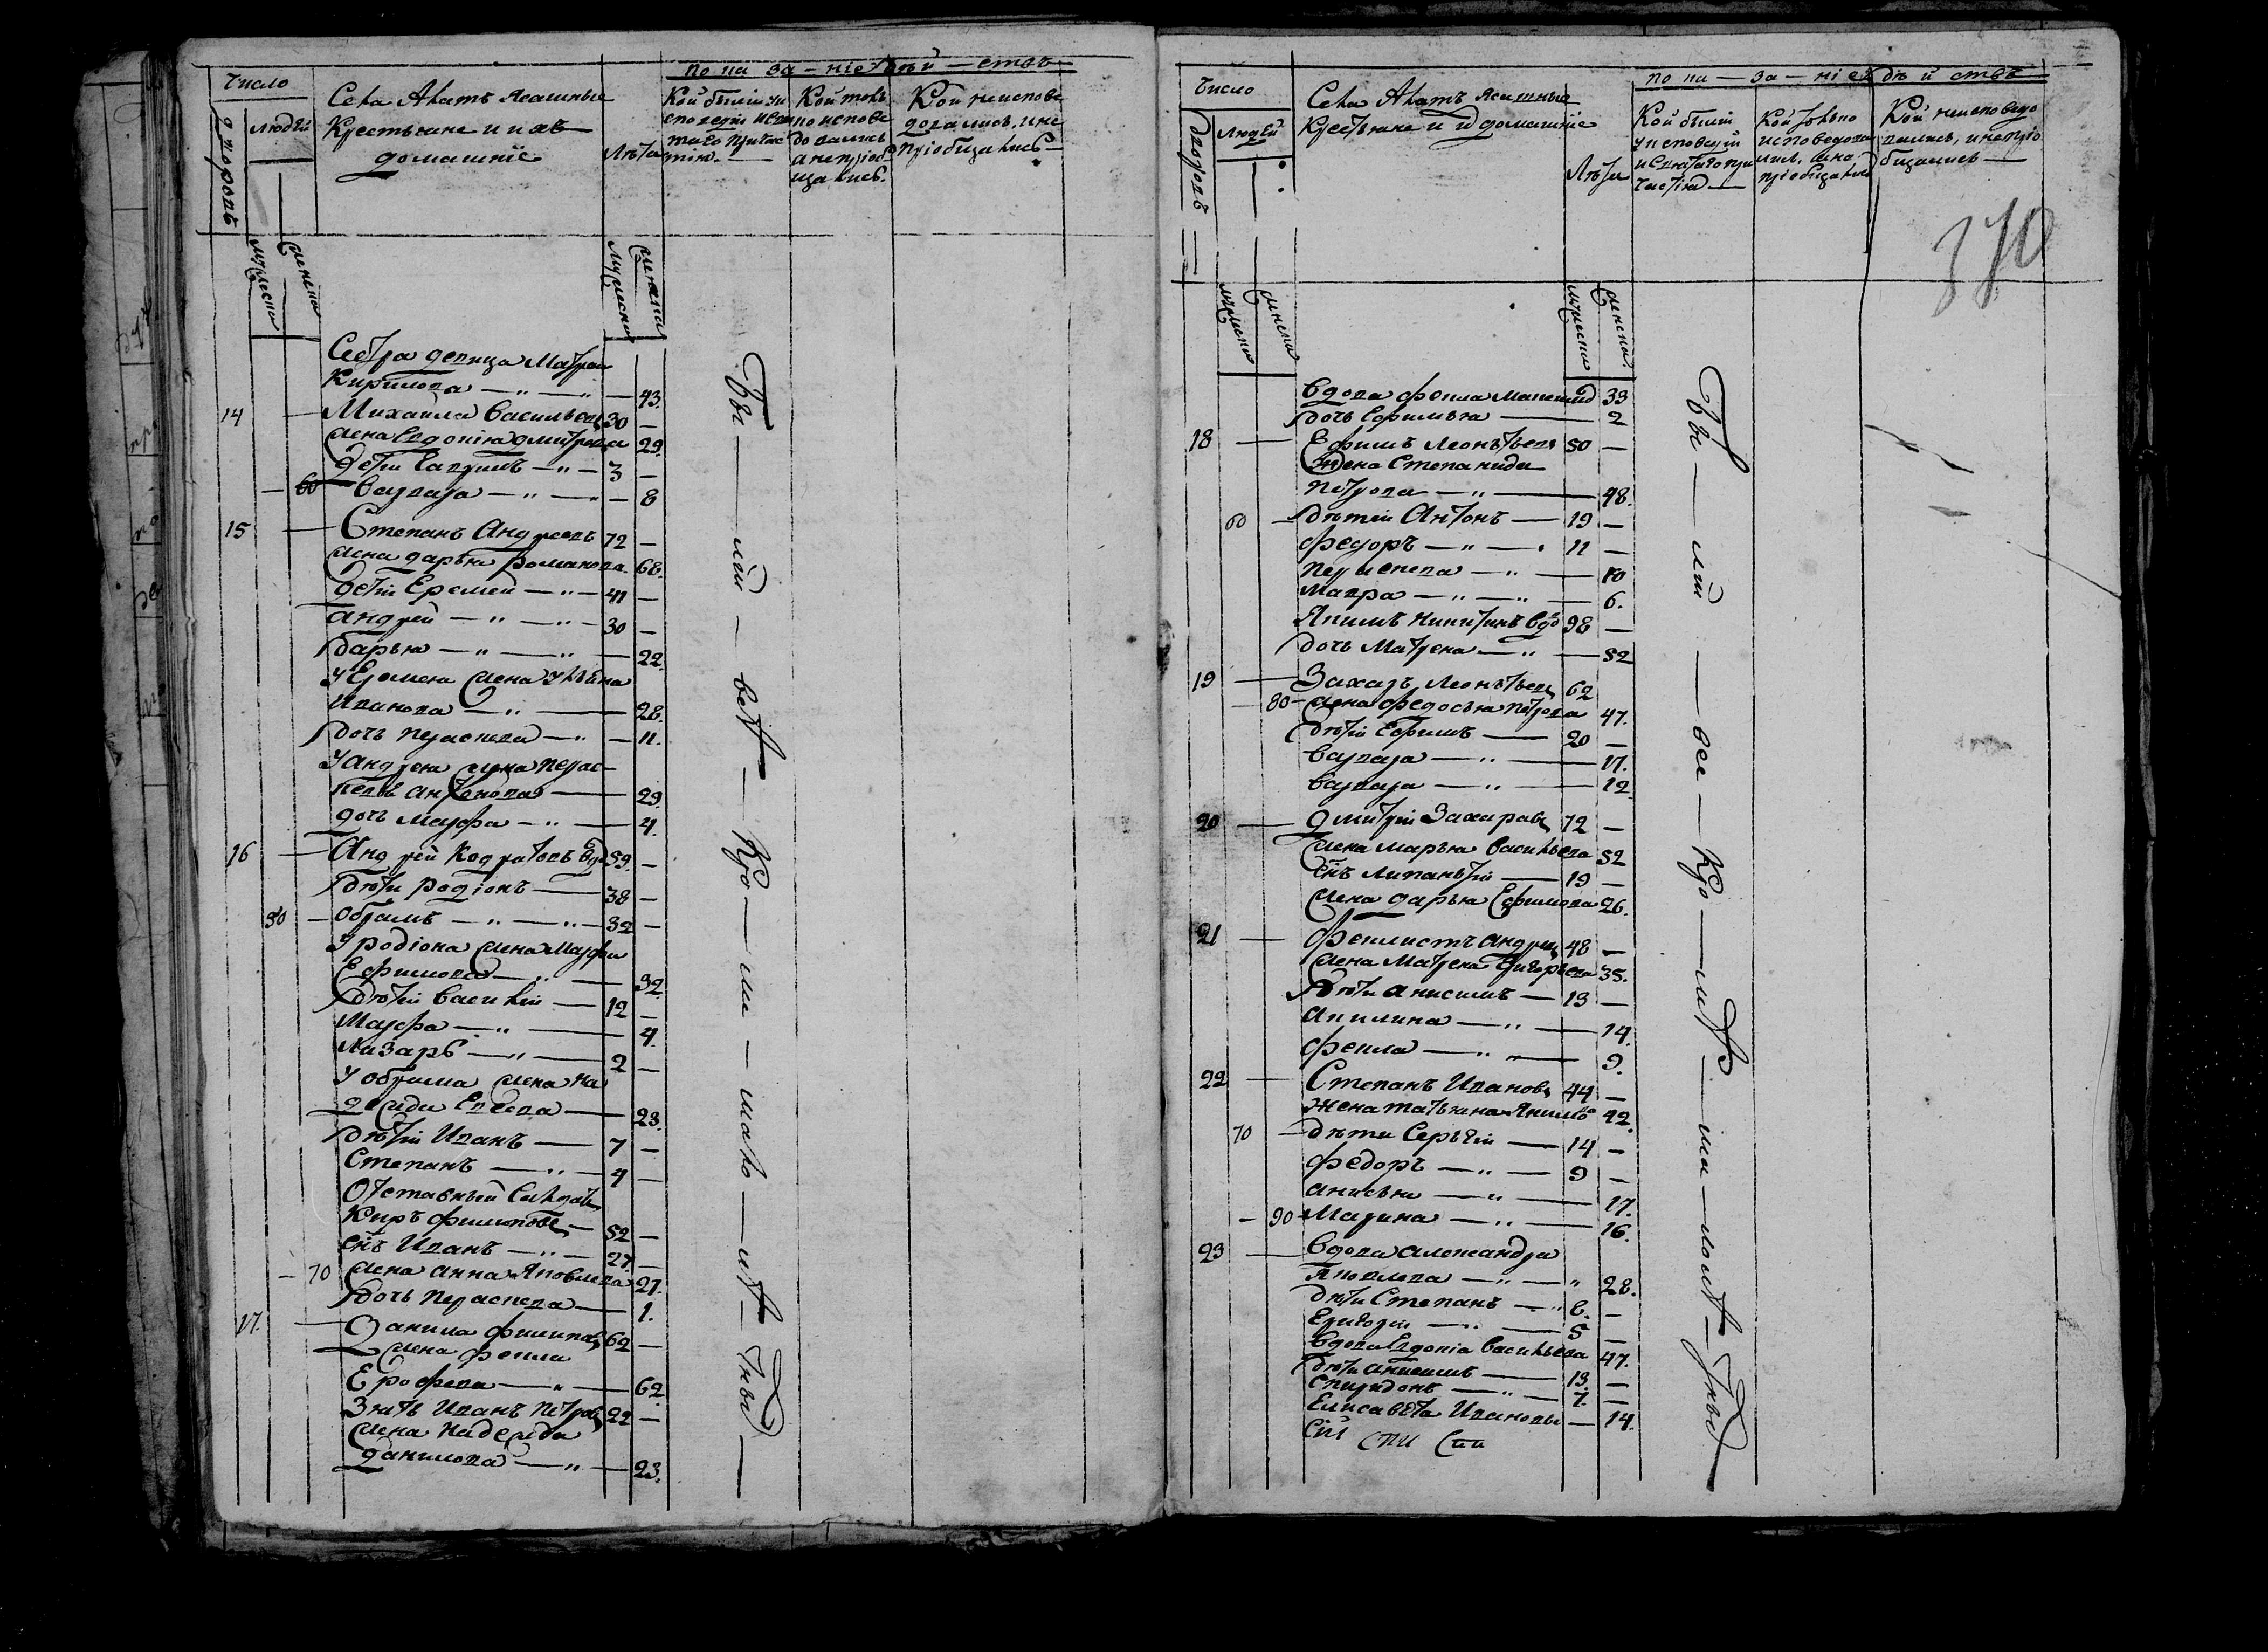 Число
дворовъ
людей
мужеска
женска
Села Акатъ Ясашные
Крестьяне и ихъ
домашнїе
Лѣта
мужеска
женска
по ка за - нїе дѣй - ствъ
Кои были у и
споведи и свя
таго прича
стія
Кои токъ
мо испове
довались
а не пріоб
щались.
Кои не испове
довались. и не
пріобщались
Сестра девица Матрена
Кирилова — 43.
14 — Михаила Васильевъ 30 —
жена Евдокія Дмитрева 29.
дети Гаврилъ — 3 —
— 60 Варвара — 8
15 — Степанъ Андреевъ 72 —
жена дарья романова. 68.
дети Еремей — 41 —
андрей — 30 —
дарья — 22.
У Еремея жена Ульяна
Иванова — 28.
дочь Параскева — 11.
У андрея жена Парас-
кева антонова — 29.
дочь Марфа — 4.
16 — Андрей Кодратовъ вдо 59. —
дѣти Родіонъ — 38 —
50 — Обрамъ — 32 —
У родіона жена Марфа
Ефимова — 32.
дѣти Василій — 12 —
Марфа — 4.
Лазарь — 2 —
У обрама жена На
дежда Евсева — 23.
дѣти Иванъ — 7 —
Степанъ — 4 —
Отставный Салдатъ
Киръ Филиповъ — 52 —
сн҃ъ Иванъ — 27. —
— 70 жена анна Яковлева 27.
дочь Параскева — 1.
17. — Данила Филиповъ 62 —
жена Фекла
Ерофева — 62
Зять Иванъ Петровъ 22 —
жена Надежда
данилова — 23.
Бы — ли — всѣ — Кро — ме — мало — лѣт — ныхъ
Число
дворовъ
Людей
мужеска
женска
Села Акатъ Ясашные
Крестьяне и ихъ домашнїе
Лѣта
мужеска
женска
по ка — за — нї е дѣ й ствъ
Кои были
у исповеди
и святаго при
частія
Кои токмо
исповедова
лись, а не
пріобщались
Кои не исповедо
вались, и не пріо
бщались
370
Вдова Фекла Максимо 33
дочь Ефимья — 2
18 — Ефимъ Леонтьевъ 50 —
жена Степанида
Петрова — 48.
60 — дѣти Антонъ — 19 —
Федоръ — 11 —
Параскева — 10
Мавра — 6.
Якимъ Никитинъ вдо 98 —
дочь Матрена — 52
19 — Захаръ Леонтьевъ 62
— 80 — жена Федосья Петрова 47.
дѣти Ефимъ — 20 —
Варвара — 17.
Варвара — 12.
20 — Дмитрій Захаравъ 72 —
жена марья Васильева 52
сн҃ъ Ливантій — 19 —
жена дарья Ефимова 26.
21 — Феклистъ андреевъ 48 —
жена Матрена Григорьева 35.
дѣти анисимъ — 13 —
акилина — 14.
Фекла — 9.
22 — Степанъ Ивановъ 44 —
жена татьяна Якимо 42.
70 — дѣти Сергѣй — 14 —
Федоръ — 9 —
анисья — 17.
— 90 Марина — 16.
23 — Вдова александра
Яковлева — 28.
дѣти Степанъ — 8. —
Григорій — 5 —
Вдова Евдокіа Васильева 47.
дѣти анисимъ — 13. —
Спиридонъ — 7. —
Елисавета Иванова — 14.
Бы — ли — все — Кро — мѣ — ма — лолѣт — ныхъ